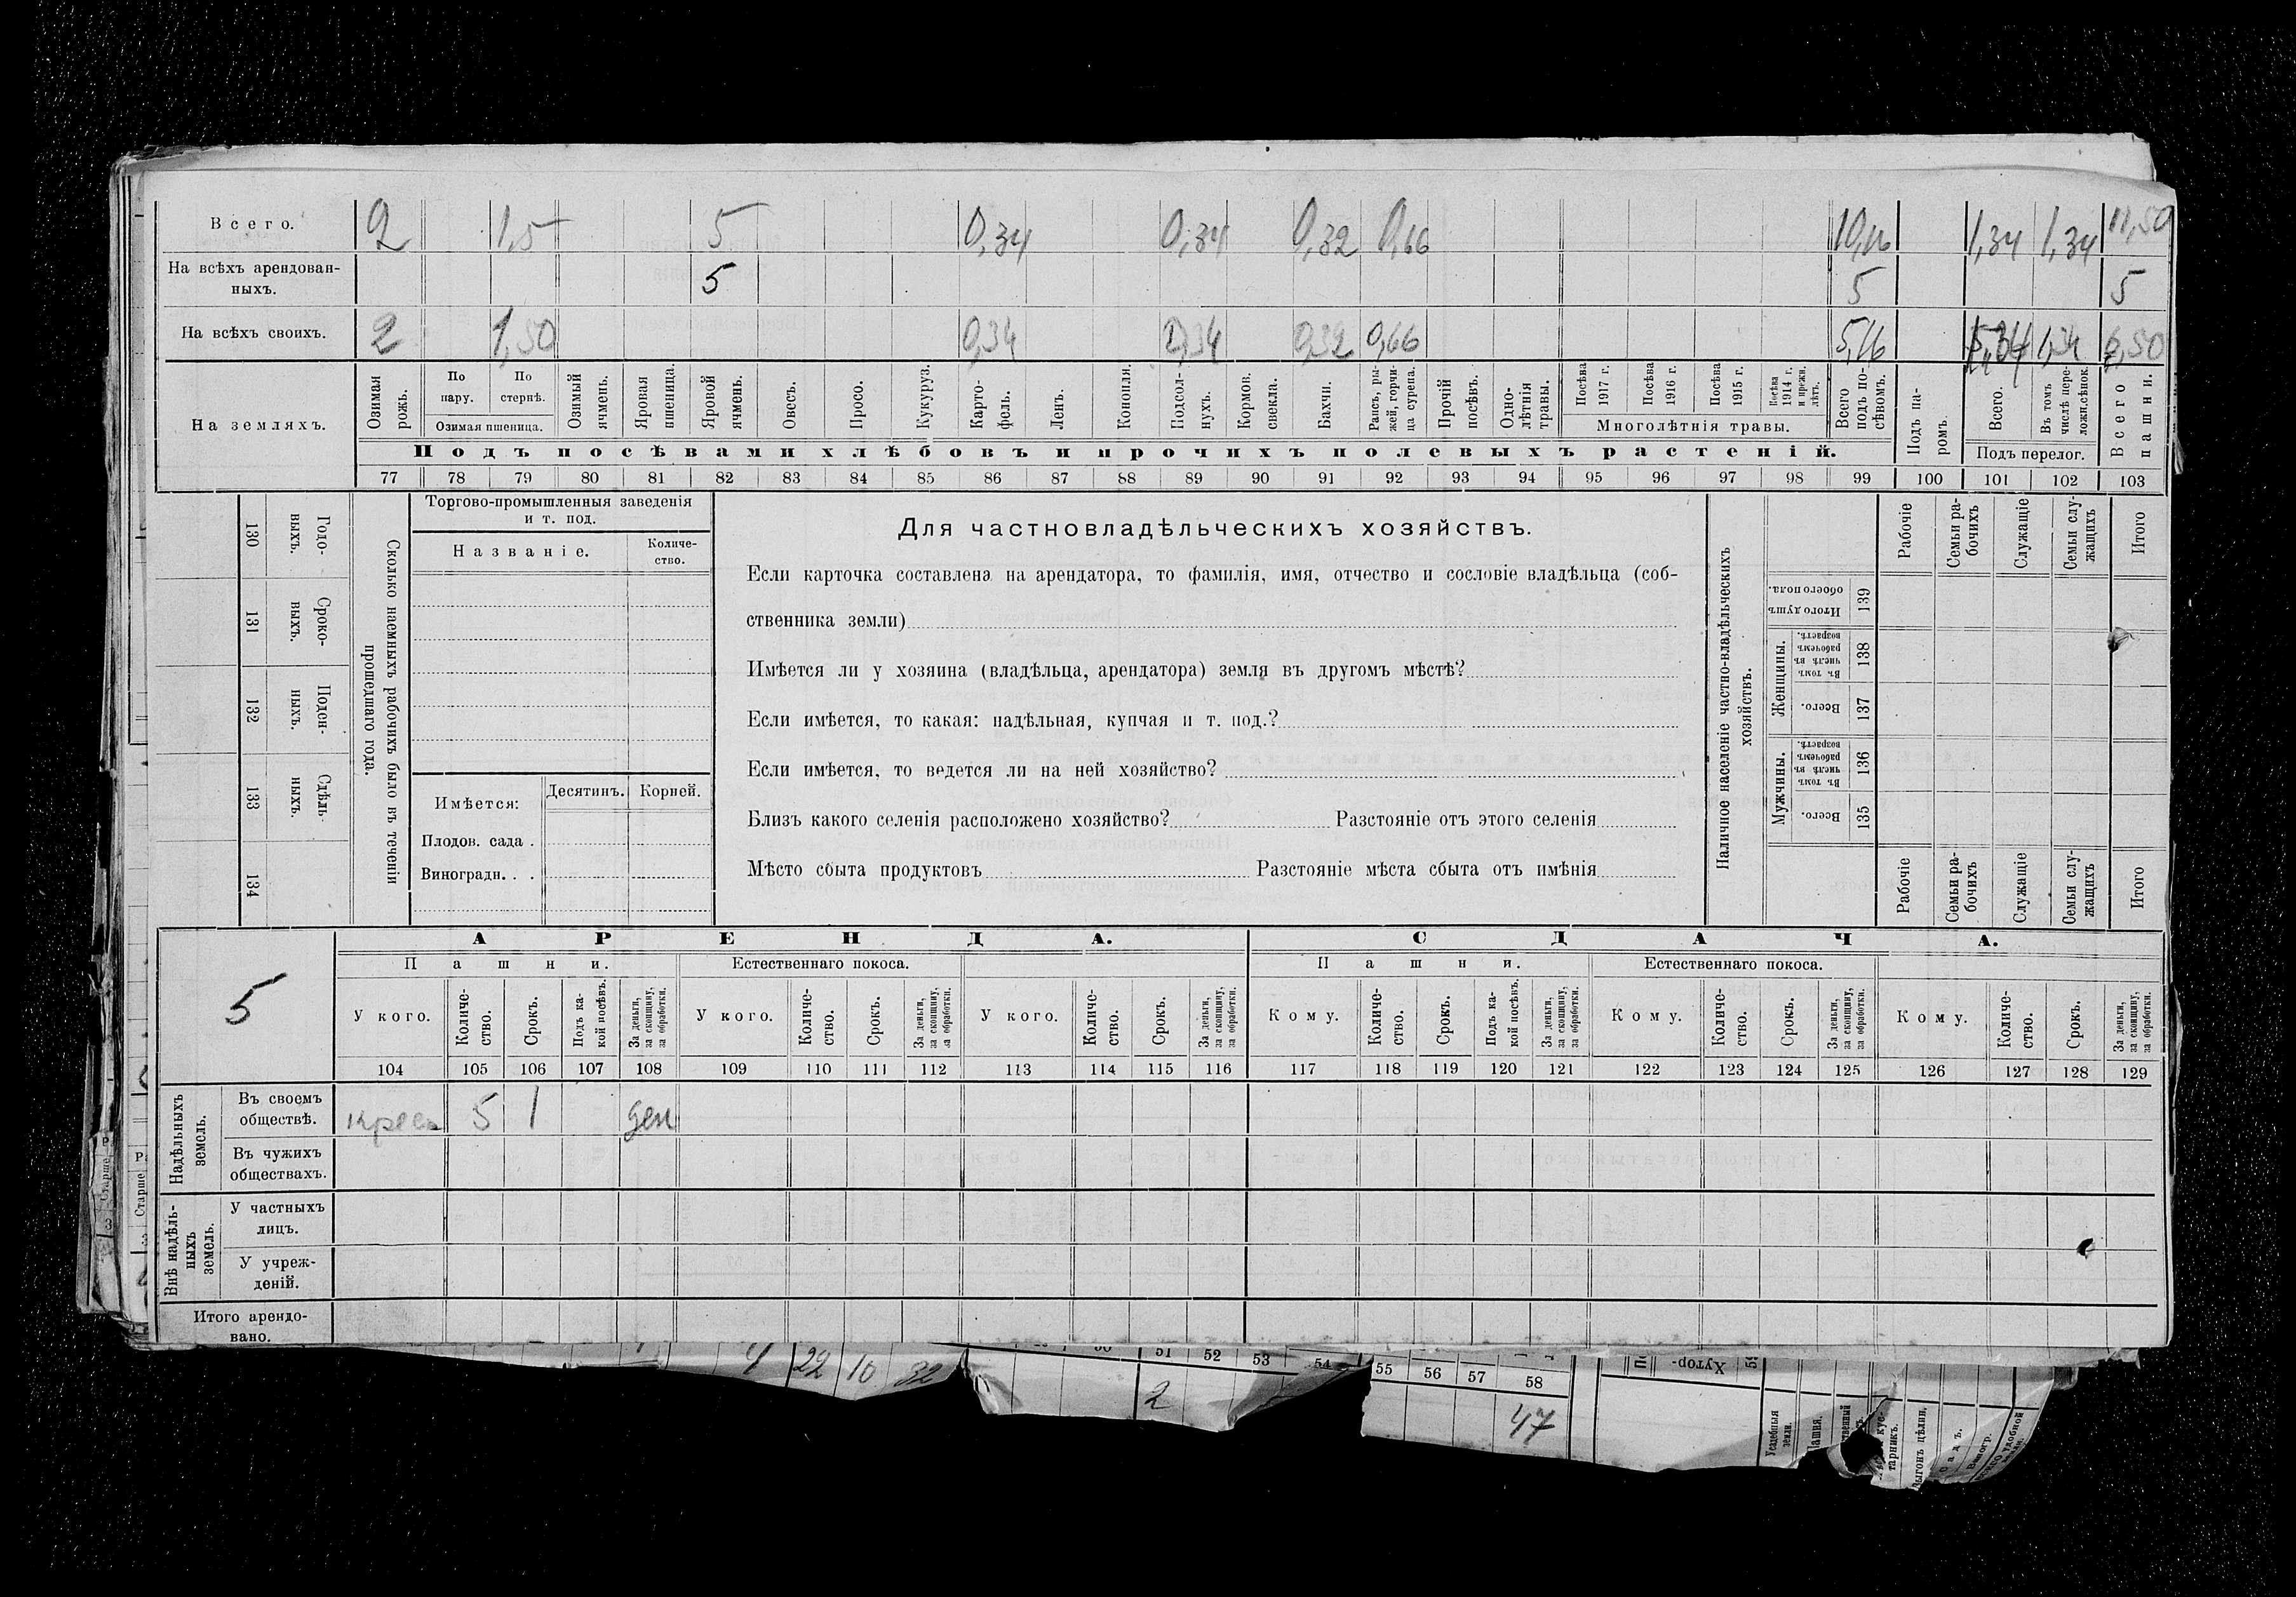 Всего. 2 1,5 5 0,34 0,34 0,32 0,66 10,16 1,34 1,34 11,50
На всѣхъ арендован-
ныхъ. 5 5 5
На всѣхъ своихъ. 2 1,50 0,34 0,34 0,32 0,66 5,16 1,34 6,50
На земляхъ.
Озимая рожь.
По пару.
По стернѣ.
Озимая пшеница.
Озимый ячмень.
Яровая пшеница.
Яровой ячмень.
Овесъ.
Просо.
Кукуруз.
Карто-
фель.
Ленъ.
Конопля.
Подсол-
нухъ.
Кормов. свекла.
Бахчи.
Рапсъ, ры-
жей, горчи-
ца сурепа.
Прочій посѣвъ.
Одно-
лѣтнія травы.
Посѣва 1917 г.
Посѣва 1916 г.
Посѣва 1915 г.
Посѣва 1914 г. и прежн. лѣтъ.
Многолѣтнія травы.
Всего подъ по-
сѣвомъ.
Подъ па-
ромъ.
Всего.
Въ томъ числѣ пере-
ложн.сѣнок.
Подъ перелог.
Всего пашни.
Подъ посѣвами хлѣбовъ и прочихъ полевыхъ растеній.
77 78 79 80 81 82 83 84 85 86 87 88 89 90 91 92 93 94 95 96 97 98 99 100 101 102 103
130 Годо-
выхъ.
131 Сроко-
выхъ.
132 Поден-
ныхъ.
133 Сдѣль-
ныхъ.
134
Сколько наемныхъ рабочихъ было въ теченіи
прошедшаго года.
Торгово-промышленныя заведенія
и т. под.
Названіе.
Количе-
ство.
Имѣется:
Десятинъ.
Корней.
Плодов. сада .
Виноградн. . .
Для частновладѣльческихъ хозяйствъ.
Если карточка составлена на арендатора, то фамилія, имя, отчество и сословіе владѣльца (соб-
ственника земли)
Имѣется ли у хозяина (владѣльца, арендатора) земля въ другомъ мѣстѣ?
Если имѣется, то какая: надѣльная, купчая и т. под.?
Если имѣется, то ведется ли на ней хозяйство?
Близъ какого селенія расположено хозяйство? Разстояніе отъ этого селенія
Мѣсто сбыта продуктовъ Разстояніе мѣста сбыта отъ имѣнія
Наличное населеніе частно-владѣльческихъ
хозяйствъ.
Рабочіе
Семьи ра-
бочихъ
Служащіе
Семьи слу-
жащихъ
Итого
Итого душъ
обоего пола.
139
Женщины.
Въ томъ числѣ въ рабочемъ возрастѣ.
138
Всего.
137
Мужчины.
Въ томъ числѣ въ рабочемъ возрастѣ.
136
Всего.
135
Рабочіе
Семьи ра-
бочихъ
Служащіе
Семьи слу-
жащихъ
Итого
5
АРЕНДА.
СДАЧА.
Пашни.
Естественнаго покоса.
Пашни.
Естественнаго покоса.
У кого.
Количе-
ство.
Срокъ.
Подъ ка-
кой посѣвъ.
За деньги,
за скопщину,
за обработки.
У кого.
Количе-
ство.
Срокъ.
За деньги,
за скопщину,
за обработки.
У кого.
Количе-
ство.
Срокъ.
За деньги,
за скопщину,
за обработки.
Кому.
Количе-
ство.
Срокъ.
Подъ ка-
кой посѣвъ.
За деньги,
за скопщину,
за обработки.
Кому.
Количе-
ство.
Срокъ.
За деньги,
за скопщину,
за обработки.
Кому.
Количе-
ство.
Срокъ.
За деньги,
за скопщину,
за обработки.
104 105 106 107 108 109 110 111 112 113 114 115 116 117 118 119 120 121 122 123 124 125 126 127 128 129
Надѣльныхъ
земель.
Въ своемъ
обществѣ. 5 1 ден
Въ чужихъ
обществахъ.
Внѣ надѣль-
ныхъ
земель.
У частныхъ
лицъ.
У учреж-
деній.
Итого арендо-
вано.
4 22 10 32
51 52 53 54 55 56 57 58
2
47
Хутор-
Усадебныя
земли.